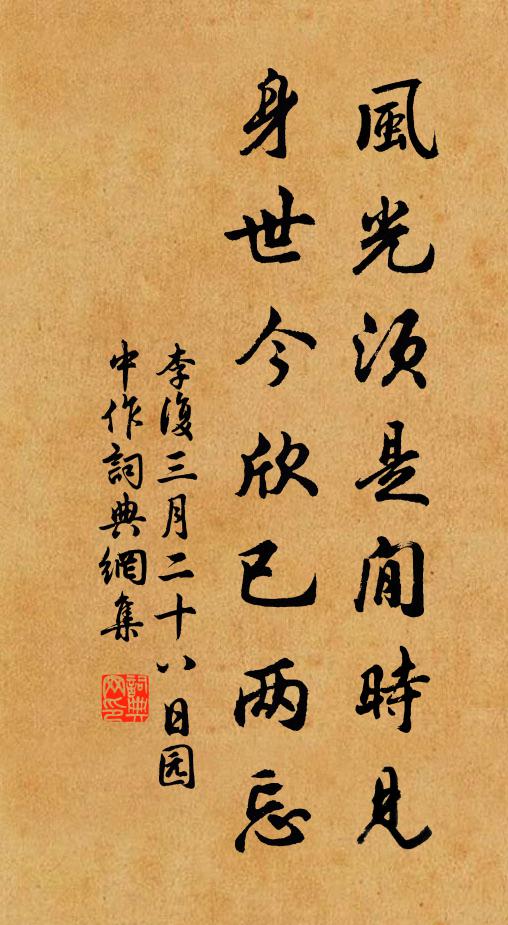 風光須是閒時見
身世今欣已两忘
李復三月二十八日园
中作詞典網集
詞典
网印